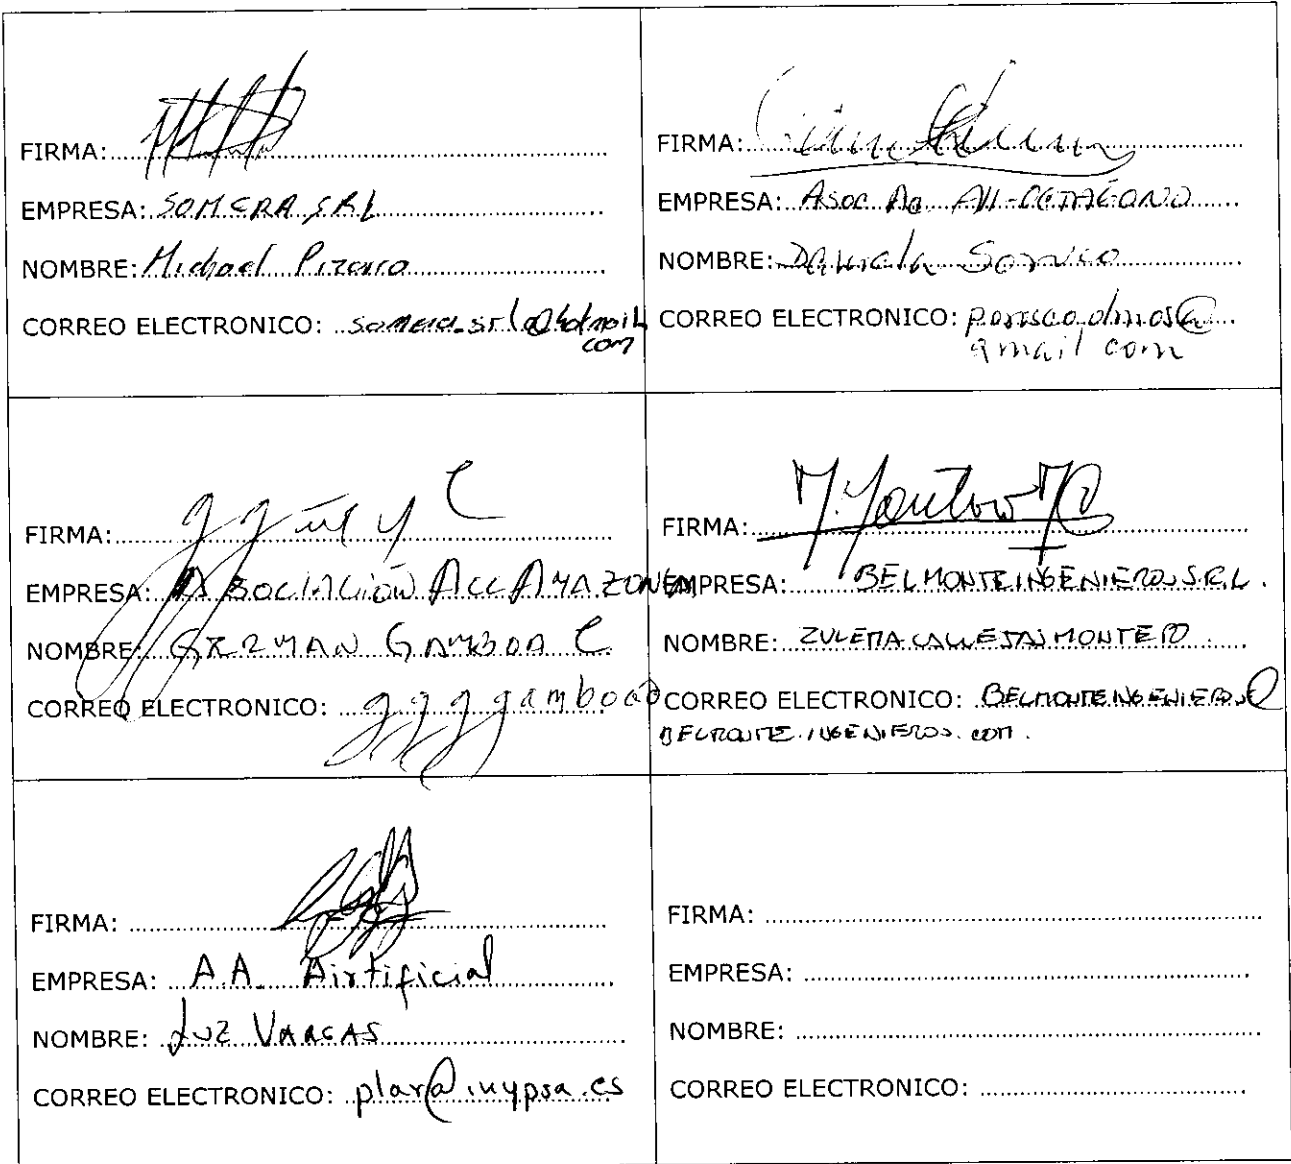 FIRMA:
EMPRESA: SOMERA SRL
NOMBRE: Michael Pizarro
CORREO ELECTRONICO: somera_srl@hotmail
com
FIRMA:
EMPRESA: Asoc. Ac. AH-OCTÁGONO
NOMBRE: Daniela
CORREO ELECTRONICO:
gmail com
FIRMA:
EMPRESA: ASOCIACIÓN ACC AMAZONEM
NOMBRE: GERMAN GAMBOA C
CORREO ELECTRONICO: ggggamboa@
FIRMA:
EMPRESA: BELMONTE INGENIEROS S.R.L.
NOMBRE: ZULEMA CALLEJAS MONTERO
CORREO ELECTRONICO: BELMONTEINGENIEROS@
BELMONTE.INGENIEROS.COM.
FIRMA:
EMPRESA: A.A. Airtificial
NOMBRE: LUZ VARGAS
CORREO ELECTRONICO: plar@inypsa.es
FIRMA:
EMPRESA:
NOMBRE:
CORREO ELECTRONICO: